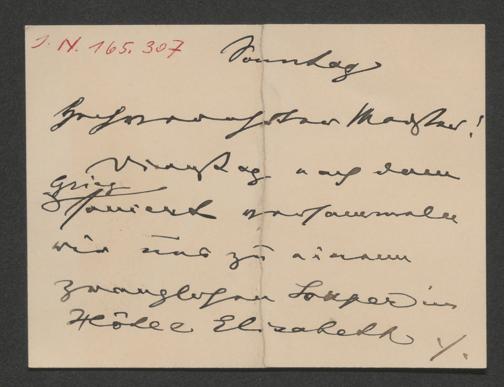 J. N. 165.307
Sonntag
Hochverehrter Meister!
Dienstag nach dem
Grieg
Concert versammeln
wir uns zu einem
zwanglosen Souper im
Hôtel Elisabeth